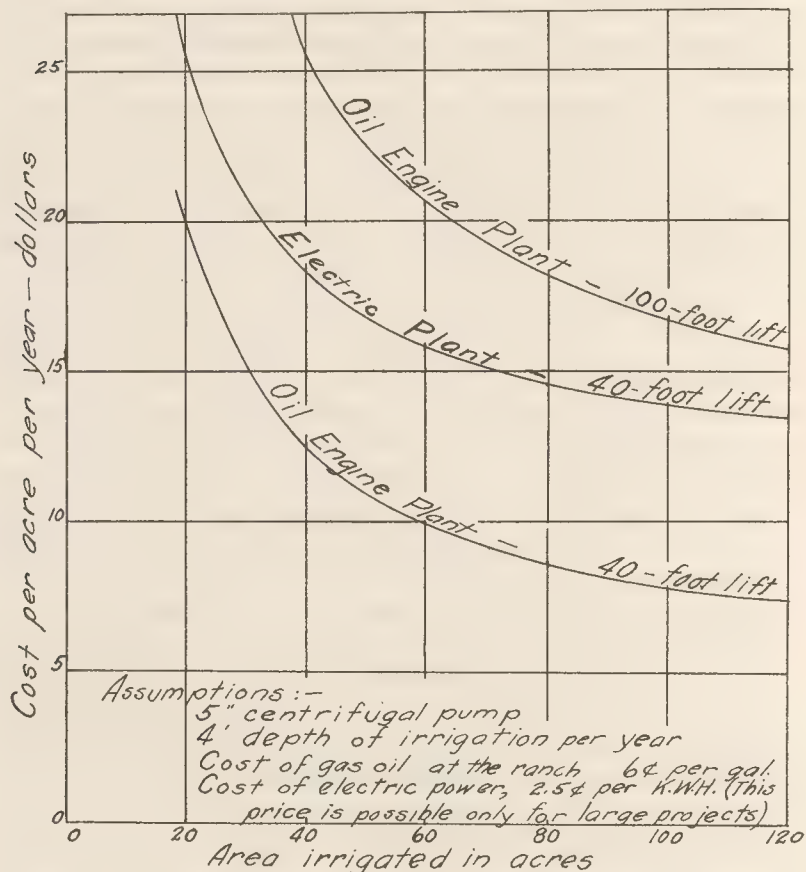 Cost per acre per year — dollars
25
20
15
10
5
0
Oil Engine Plant — 100-foot lift
Electric Plant — 40-foot lift
Oil Engine Plant — 40-foot lift
Assumptions :—
5" centrifugal pump
4' depth of irrigation per year
Cost of gas oil at the ranch 6¢ per gal.
Cost of electric power, 2.5¢ per K.W.H. (This
price is possible only for large projects)
0 20 40 60 80 100 120
Area irrigated in acres